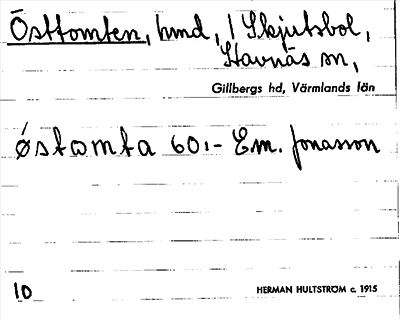 Östtomten, hmd, 1 Skjutsbol,
Stavnäs sn,
Gillbergs hd, Värmlands län
ǿstomta 60:- Em. Jonasson
10
HERMAN HULTSTRÖM c. 1915